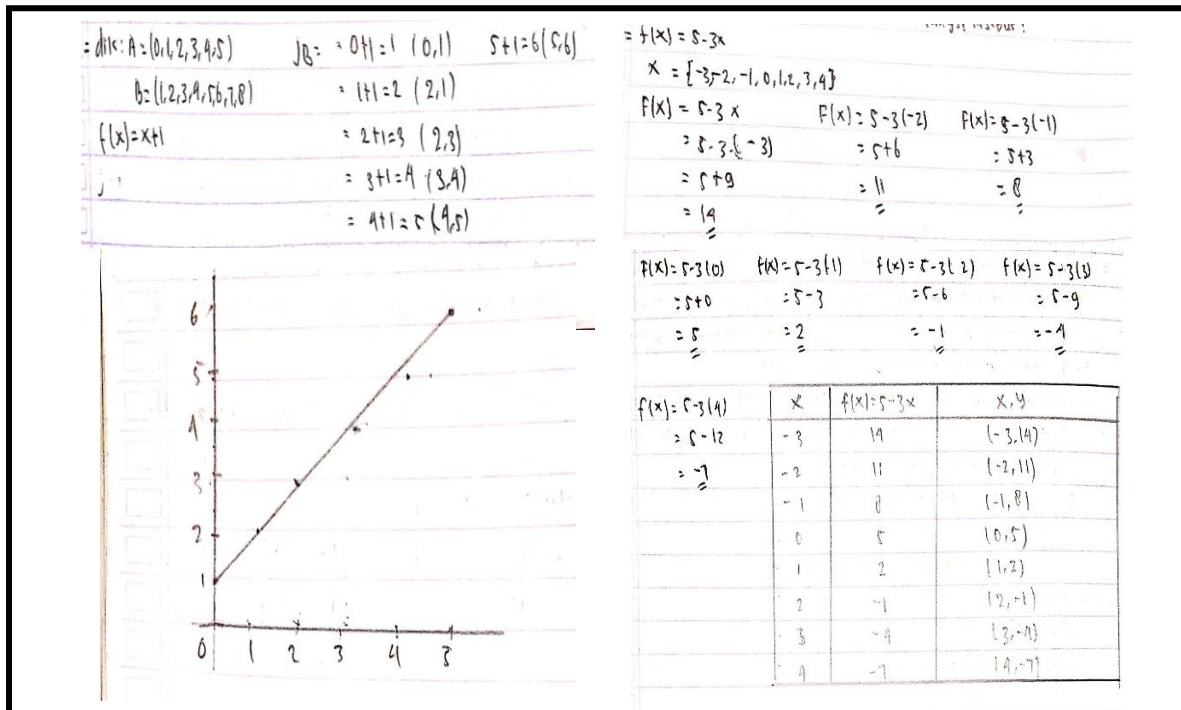 = dik: A = (0,1,2,3,4,5)
B = (1,2,3,4,5,6,7,8)
f(x) = x+1
JB: = 0+1 = 1 (0,1) 5+1 = 6 (5,6)
= 1+1 = 2 (2,1)
= 2+1 = 3 (2,3)
= 3+1 = 4 (3,4)
= 4+1 = 5 (4,5)
6
5
4
3
2
1
0 1 2 3 4 5
= f(x) = 5-3x
x = {-3,-2,-1,0,1,2,3,4}
F(x) = 5-3x F(x) = 5-3(-2) F(x) = 5-3(-1)
= 5-3.(-3) = 5+6 = 5+3
= 5+9 = 11 = 8
= 14
F(x) = 5-3(0) f(x) = 5-3(1) f(x) = 5-3(2) f(x) = 5-3(3)
= 5+0 = 5-3 = 5-6 = 5-9
= 5 = 2 = -1 = -4
f(x) = 5-3(4)
= 5-12
= -7
x f(x) = 5-3x x,y
-3 14 (-3,14)
-2 11 (-2,11)
-1 8 (-1,8)
0 5 (0,5)
1 2 (1,2)
2 -1 (2,-1)
3 -4 (3,-4)
4 -7 (4,-7)